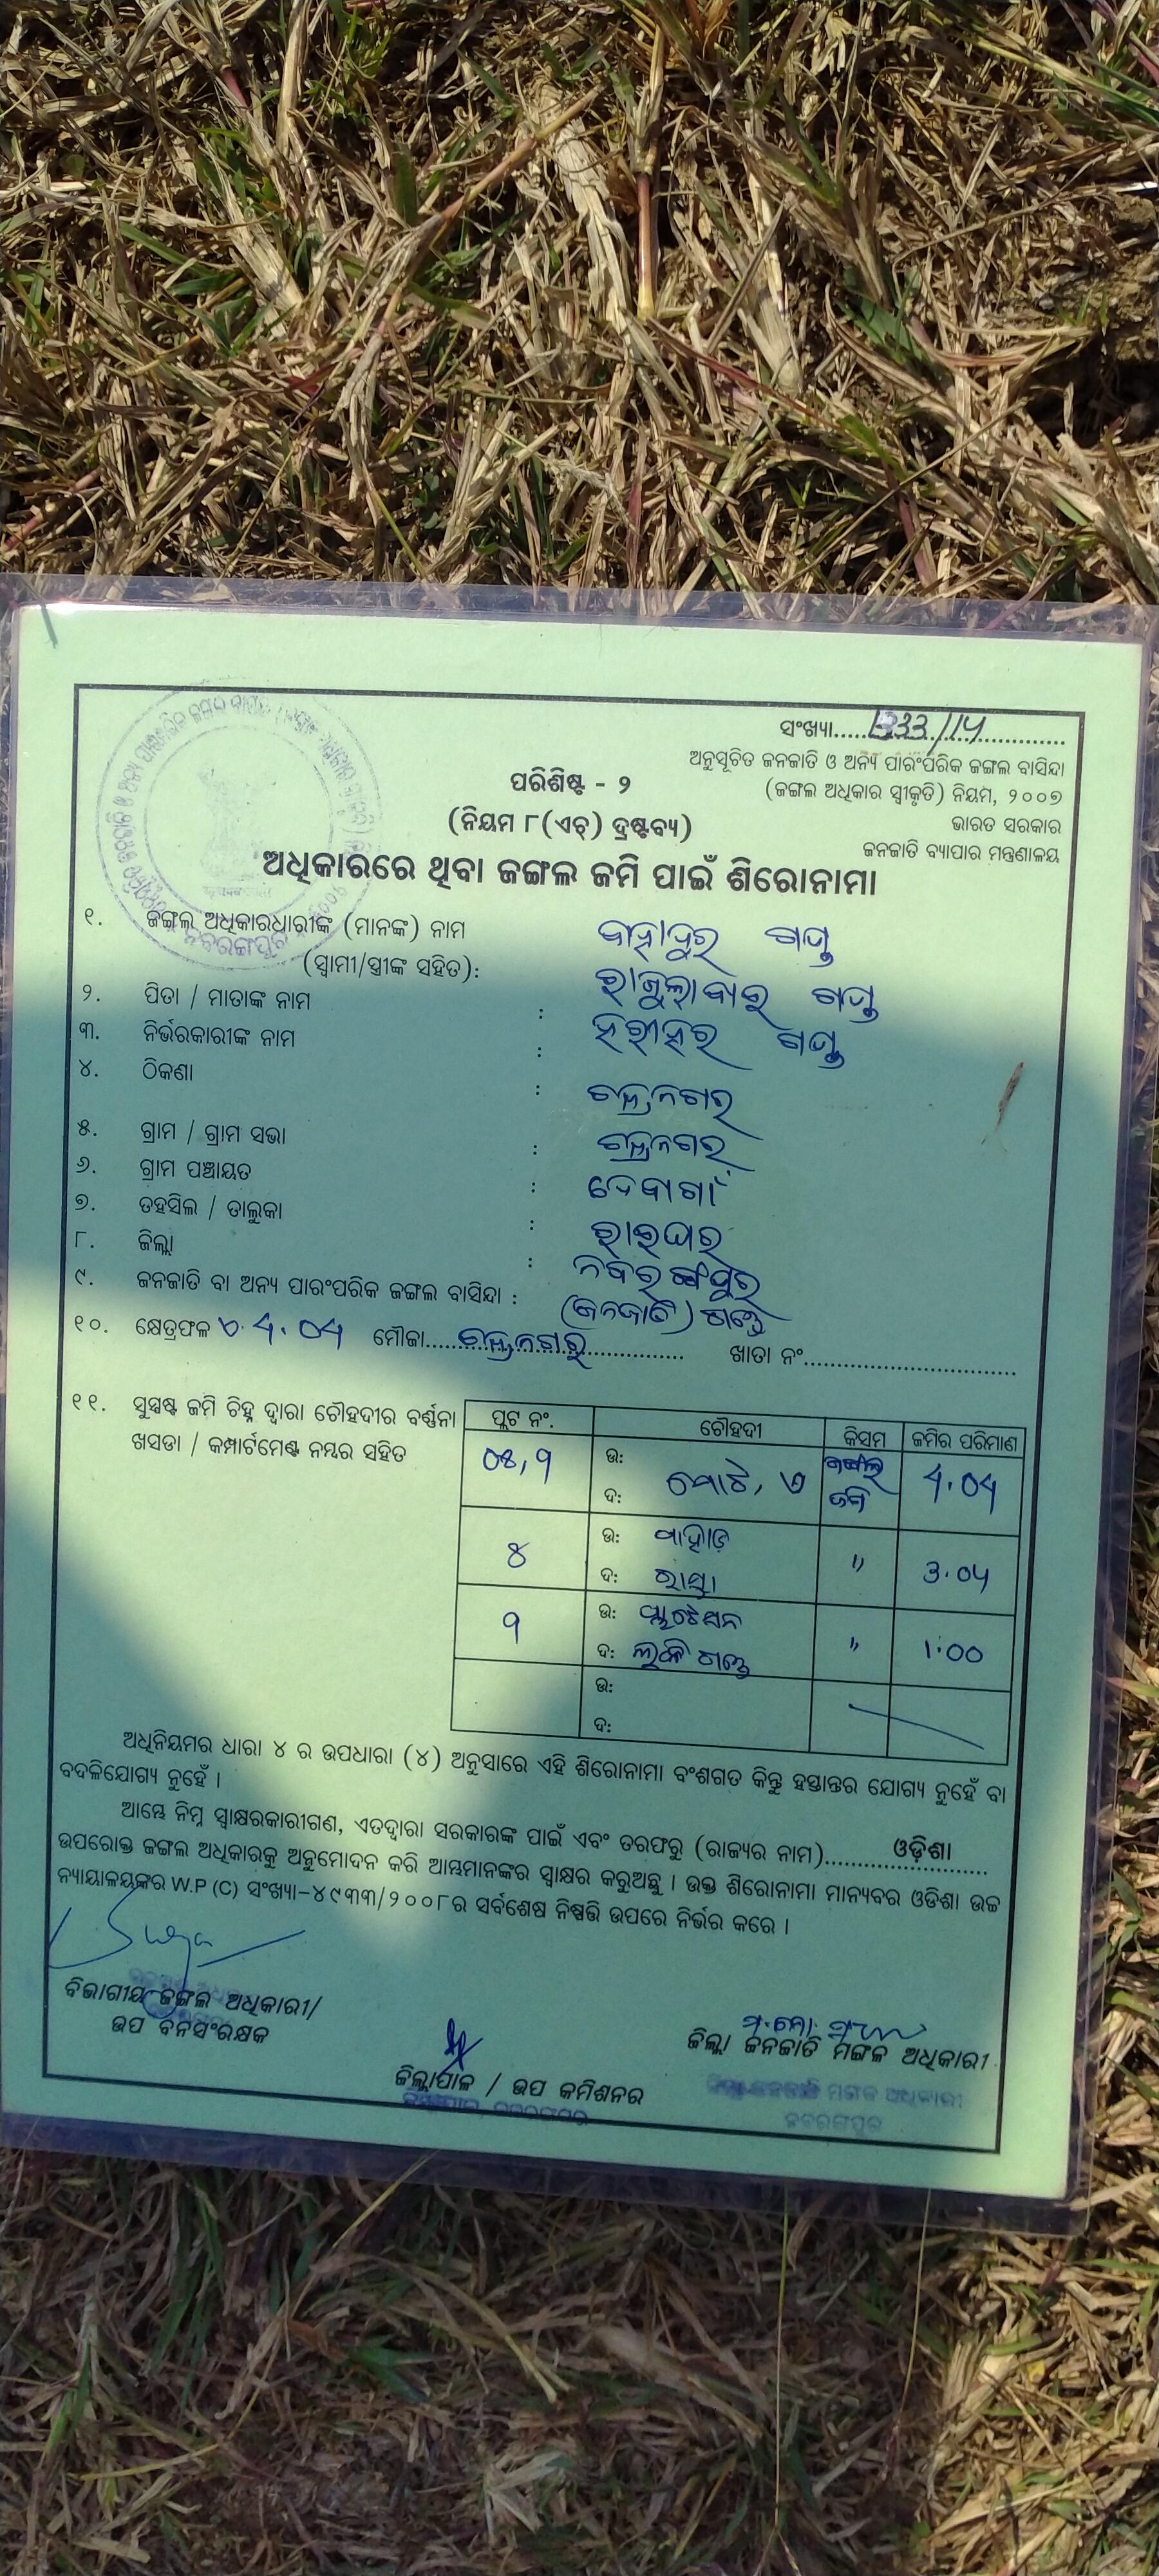 ସଂଖ୍ୟା..... 1333/14
ଅନୁସୂଚିତ ଜନଜାତି ଓ ଅନ୍ୟ ପାରଂପରିକ ଜଙ୍ଗଲ ବାସିନ୍ଦା
(ଜଙ୍ଗଲ ଅଧିକାର ସ୍ୱୀକୃତି) ନିୟମ, ୨୦୦୭
ଭାରତ ସରକାର
ଜନଜାତି ବ୍ୟାପାର ମନ୍ତ୍ରଣାଳୟ
ପରିଶିଷ୍ଟ - ୨
(ନିୟମ ୮(ଏଚ୍) ଦ୍ରଷ୍ଟବ୍ୟ)
ଅଧିକାରରେ ଥିବା ଜଙ୍ଗଲ ଜମି ପାଇଁ ଶିରୋନାମା
୧. ଜଙ୍ଗଲ ଅଧିକାରଧାରୀଙ୍କ (ମାନଙ୍କ) ନାମ
(ସ୍ୱାମୀ/ସ୍ତ୍ରୀଙ୍କ ସହିତ):
୨. ପିତା / ମାତାଙ୍କ ନାମ :
୩. ନିର୍ଭରକାରୀଙ୍କ ନାମ : ହରୀହର
୪. ଠିକଣା : ଚନ୍ଦ୍ରନଗର
୫. ଗ୍ରାମ / ଗ୍ରାମ ସଭା : ଚନ୍ଦ୍ରନଗର
୬. ଗ୍ରାମ ପଞ୍ଚାୟତ : ଦେବାଗାଁ
୭. ତହସିଲ / ତାଲୁକା : ରାଇଘର
୮. ଜିଲ୍ଲା : ନବରଙ୍ଗପୁର
୯. ଜନଜାତି ବା ଅନ୍ୟ ପାରଂପରିକ ଜଙ୍ଗଲ ବାସିନ୍ଦା : (ଜନଜାତି) ଗଣ୍ଡ
୧୦. କ୍ଷେତ୍ରଫଳ ଏ 4.04 ମୌଜା..... ଚନ୍ଦ୍ରନଗର ..... ଖାତା ନଂ.....
୧୧. ସୁସ୍ପଷ୍ଟ ଜମି ଚିହ୍ନ ଦ୍ୱାରା ଚୌହଦୀର ବର୍ଣ୍ଣନା
ଖସଡା / କମ୍ପାର୍ଟମେଣ୍ଟ ନମ୍ବର ସହିତ
ପ୍ଲଟ ନଂ. ଚୌହଦୀ କିସମ ଜମିର ପରିମାଣ
ଉ: ଜଙ୍ଗଲ
ଦ: ମୋଟ, ଏ ଜମି 4.04
୪ ଉ: ପାହାଡ଼ " 3.04
ଦ: ରାସ୍ତା
୨ ଉ: " 1.00
ଦ: ଗଣ୍ଡ
ଉ:
ଦ:
ଅଧିନିୟମର ଧାରା ୪ ର ଉପଧାରା (୪) ଅନୁସାରେ ଏହି ଶିରୋନାମା ବଂଶଗତ କିନ୍ତୁ ହସ୍ତାନ୍ତର ଯୋଗ୍ୟ ନୁହେଁ ବା
ବଦଳିଯୋଗ୍ୟ ନୁହେଁ ।
ଆମ୍ଭେ ନିମ୍ନ ସ୍ୱାକ୍ଷରକାରୀଗଣ, ଏତଦ୍ୱାରା ସରକାରଙ୍କ ପାଇଁ ଏବଂ ତରଫରୁ (ରାଜ୍ୟର ନାମ)..... ଓଡ଼ିଶା .....
ଉପରୋକ୍ତ ଜଙ୍ଗଲ ଅଧିକାରକୁ ଅନୁମୋଦନ କରି ଆମ୍ଭମାନଙ୍କର ସ୍ୱାକ୍ଷର କରୁଅଛୁ । ଉକ୍ତ ଶିରୋନାମା ମାନ୍ୟବର ଓଡିଶା ଉଚ୍ଚ
ନ୍ୟାୟାଳୟଙ୍କର W.P (C) ସଂଖ୍ୟା-୪୯୩୩/୨୦୦୮ର ସର୍ବଶେଷ ନିଷ୍ପତ୍ତି ଉପରେ ନିର୍ଭର କରେ ।
ବିଭାଗୀୟ ଜଙ୍ଗଲ ଅଧିକାରୀ/
ଉପ ବନସଂରକ୍ଷକ
ଜିଲ୍ଲାପାଳ / ଉପ କମିଶନର
ଜିଲ୍ଲା ଜନଜାତି ମଙ୍ଗଳ ଅଧିକାରୀ
ମଙ୍ଗଳ ଅଧିକାରୀ
ନବରଙ୍ଗପୁର